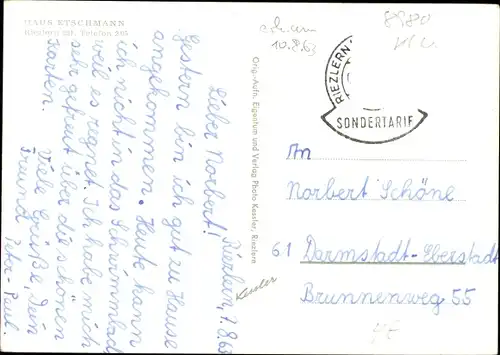 HAUS ETSCHMANN
Riezlern 221, Telefon 265
Riezlern, 7.8.63
Lieber Norbert!
Gestern bin ich gut zu Hause
angekommen. Heute kann
ich nicht in das Schwimmbad
weil es regnet. Ich habe mich
sehr gefreut über die schönen
Karten. Viele Grüße, Dein
Freund Peter-Paul.
Orig.-Aufn. Eigentum und Verlag Photo Kessler, Riezlern
Kessler
10.8.63
8980
RIEZLERN
SONDERTARIF
An
Norbert Schöne
61 Darmstadt-Eberstadt
Brunnenweg 55